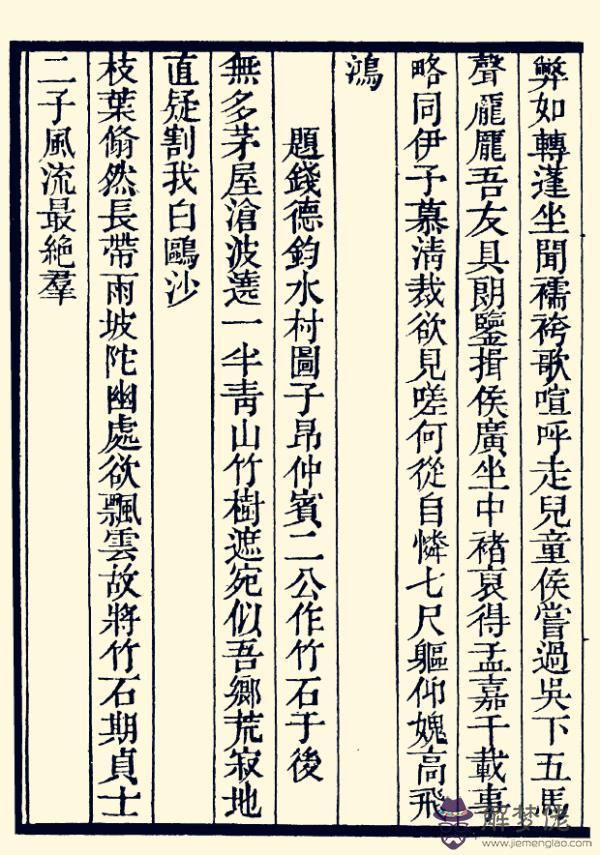 弊如轉蓬坐聞襦袴歌喧呼走兒童侯嘗過吳下五馬
聲龎龎吾友具朗鑒揖侯廣坐中褚裒得孟嘉千載事
略同伊予慕淸裁欲見嗟何從自憐七尺軀仰媿高飛
鴻
題錢德鈞水村圖子昂仲賓二公作竹石于後
無多茅屋滄波遶一半靑山竹樹遮宛似吾鄉荒寂地
直疑割我白鷗沙
枝葉翛然長帶雨坡陀幽處欲飄雲故將竹石期貞士
二子風流最絶羣
解梦佬
www.jiemenglao.com